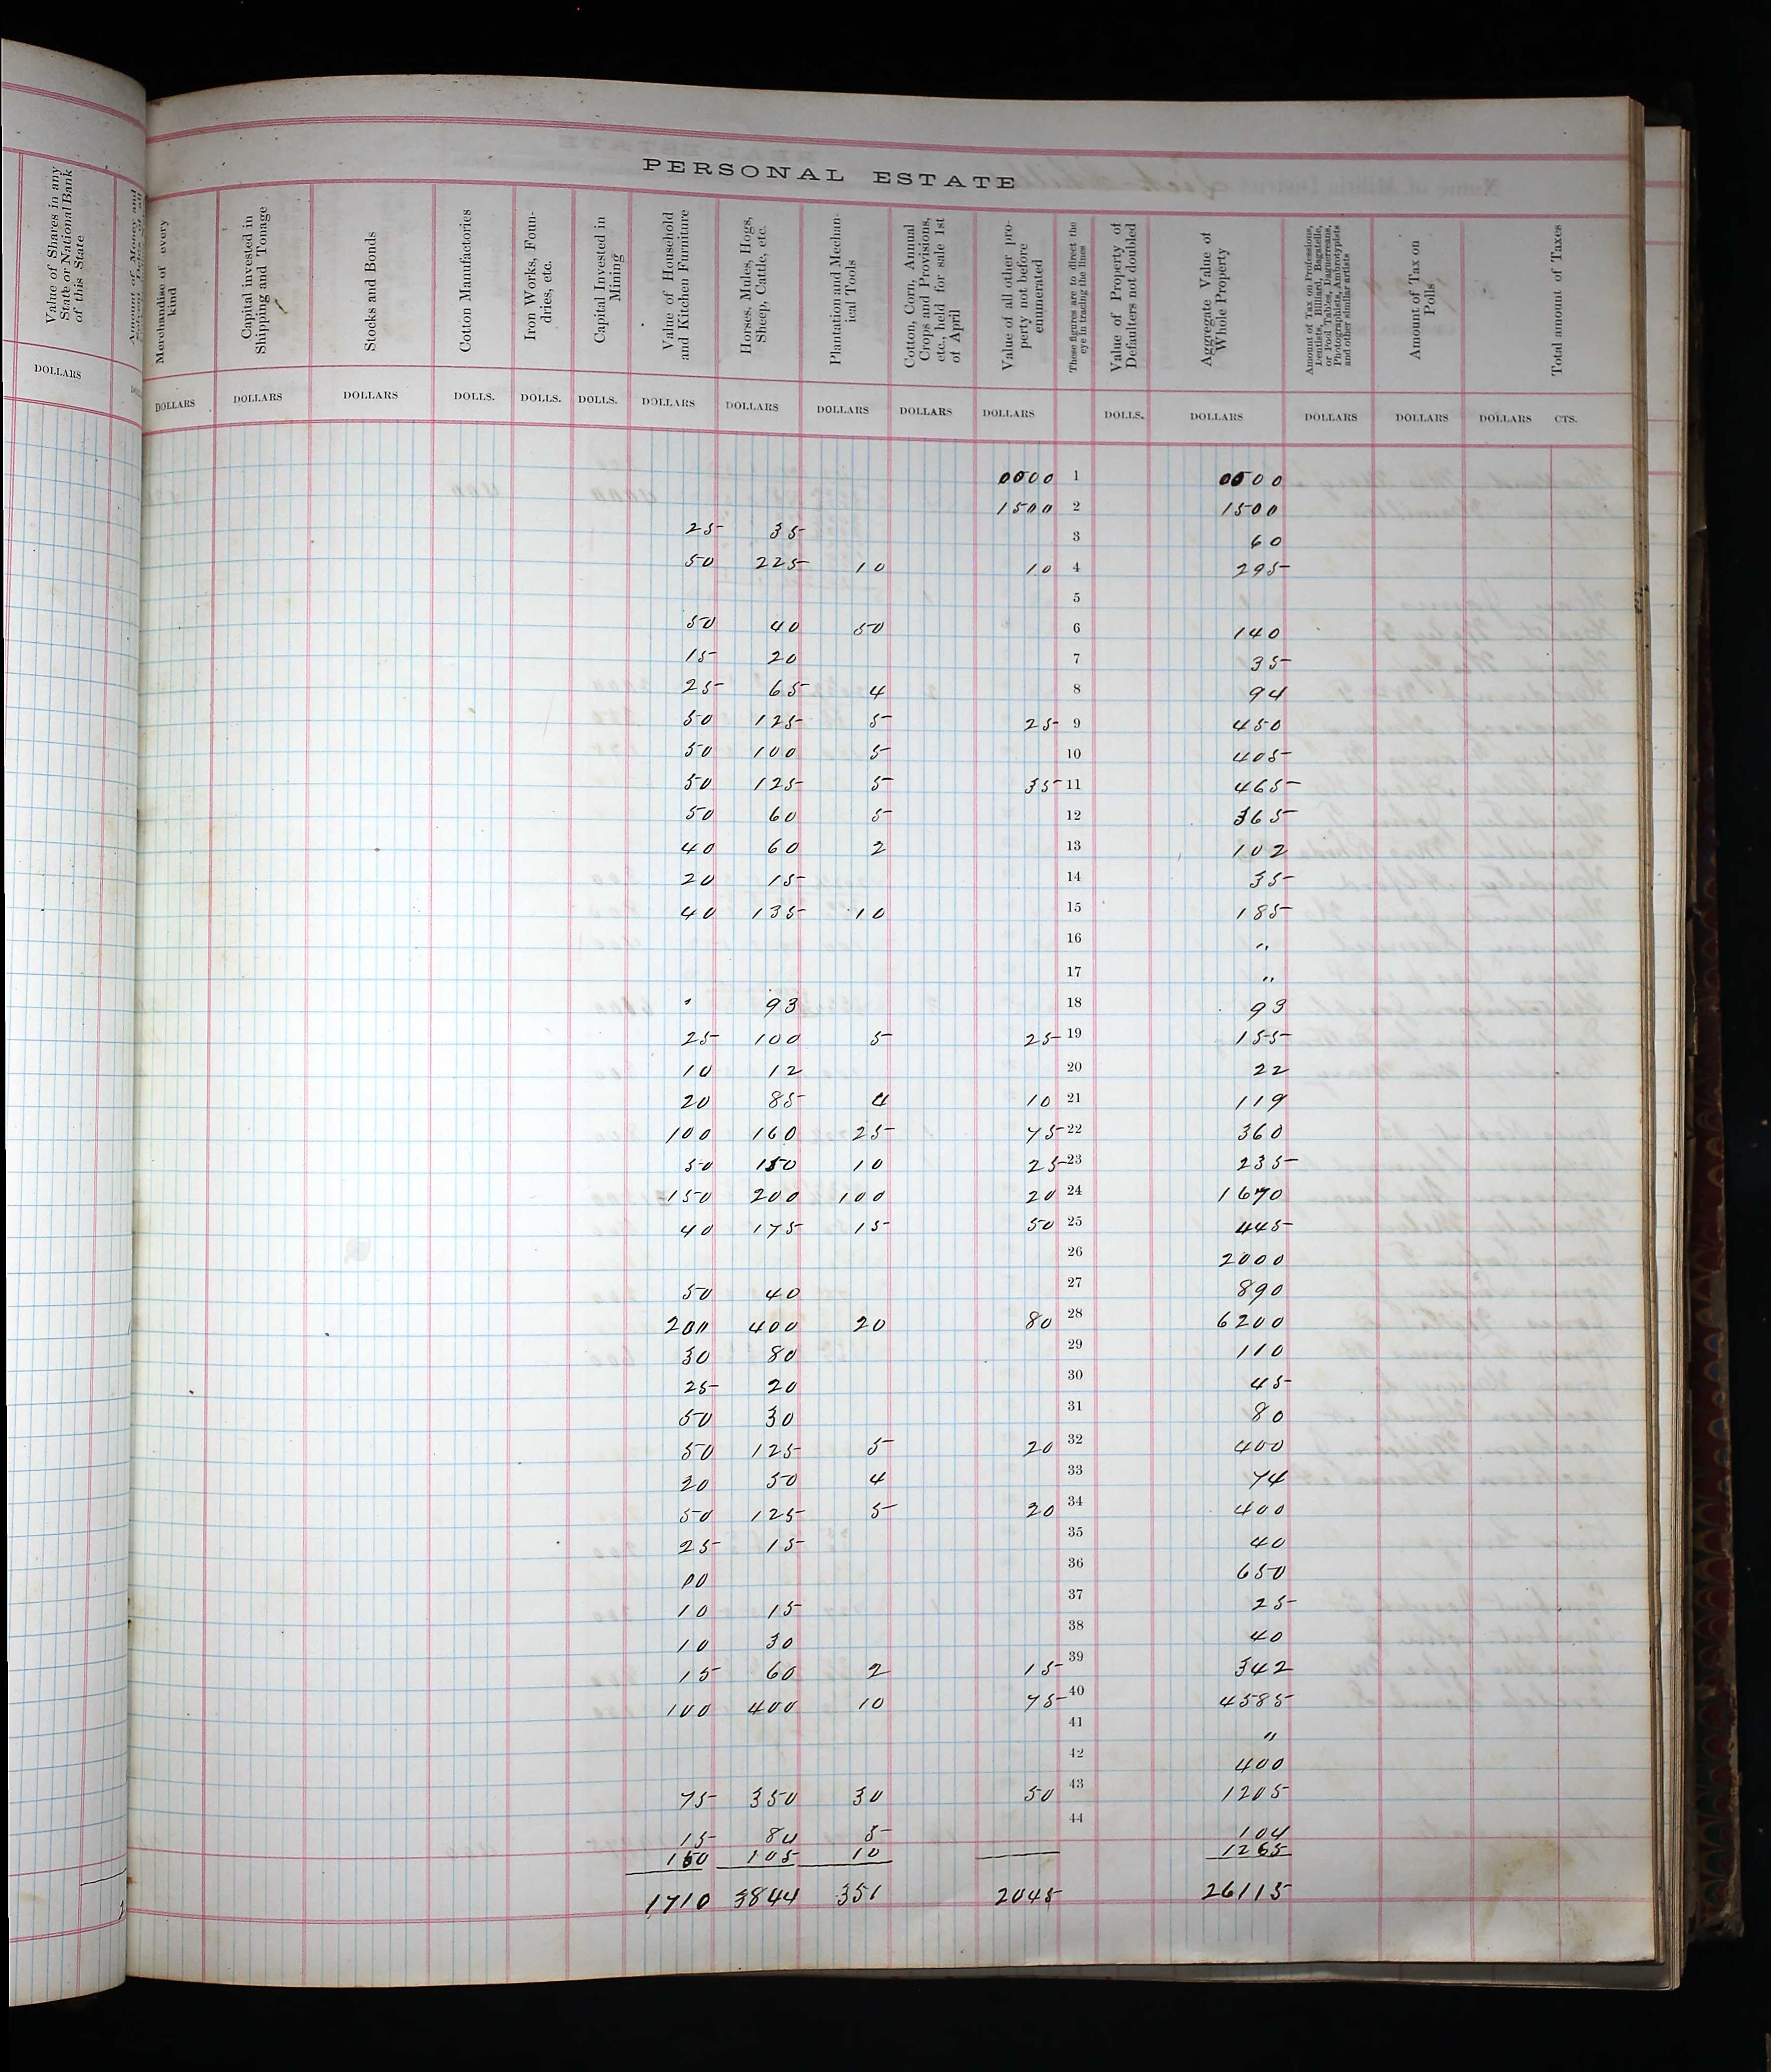 PERSONAL ESTATE
Value of Shares in any State or National Bank of this State
Merchandise of every kind
Capital invested in Shipping and Tonage
Stocks and Bonds
Cotton Manufactories
Iron Works, Foundries, etc.
Capital Invested in Mining
Value of Household and Kitchen Furniture
Horses, Mules, Hogs, Sheep, Cattle, etc.
Plantation and Mechanical Tools
Cotton, Corn, Annual Crops and Provisions, etc., held for sale 1st of April
Value of all other property not before enumerated
These figures are to direct the eye in tracing the lines
Value of Property of Defaulters not doubled
Aggregate Value of Whole Property
Amount of Tax on Professions, Dentists, Billiard, Bagatelle, or Pool Tables, Daguerreans, Photographists, Ambrotypists and other similar artists
Amount of Tax on Polls
Total amount of Taxes
DOLLARS DOLLARS DOLLARS DOLLARS DOLLS. DOLLS. DOLLS. DOLLARS DOLLARS DOLLARS DOLLARS DOLLARS DOLLS. DOLLARS DOLLARS DOLLARS DOLLARS CTS.
0000 1 0000
1500 2 1500
25 35 3 60
50 225 10 10 4 295
5
50 40 50 6 140
15 20 7 35
25 65 4 8 94
50 125 5 25 9 450
50 100 5 10 405
50 125 5 35 11 465
50 60 5 12 365
40 60 2 13 102
20 15 14 35
40 135 10 15 185
16 "
17 "
93 18 93
25 100 5 25 19 155
10 12 20 22
20 85 4 10 21 119
100 160 25 75 22 360
50 150 10 25 23 235
150 200 100 20 24 1670
40 175 15 50 25 445
26 2000
50 40 27 890
200 400 20 80 28 6200
30 80 29 110
25 20 30 45
50 30 31 80
50 125 5 20 32 400
20 50 4 33 74
50 125 5 20 34 400
25 15 35 40
36 650
10 15 37 25
10 30 38 40
15 60 2 15 39 342
100 400 10 75 40 4585
41 "
42 400
75 350 30 50 43 1205
44
15 80 5 104
150 105 10 1265
1710 3844 351 2045 26115